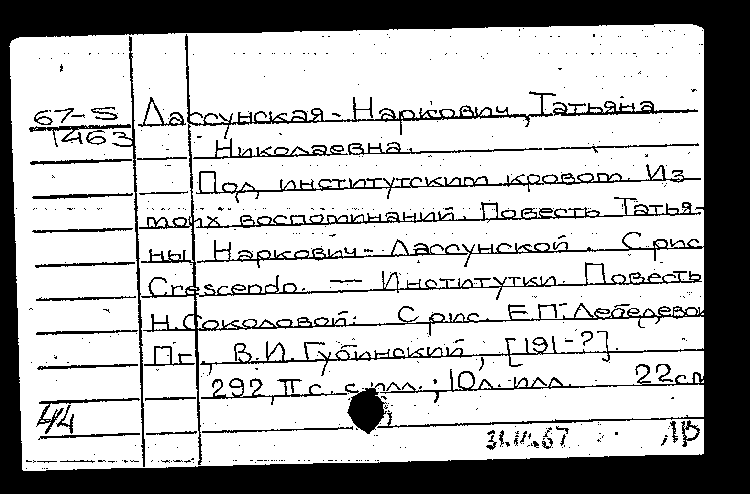 67-5 Лассунская-Наркович, Татьяна
1463 Николаевна.
Под институтским кровом. Из
моих воспоминаний. Повесть Татья-
ны Наркович-Лассунской. С рис.
Crescendo. — Институтки. Повесть
Н.Соколовой. С рис. Е.П.Лебедевой
Пг., В.И.Губинский, [191-?].
292, II с. с илл.; 10л. илл. 22см
44
67